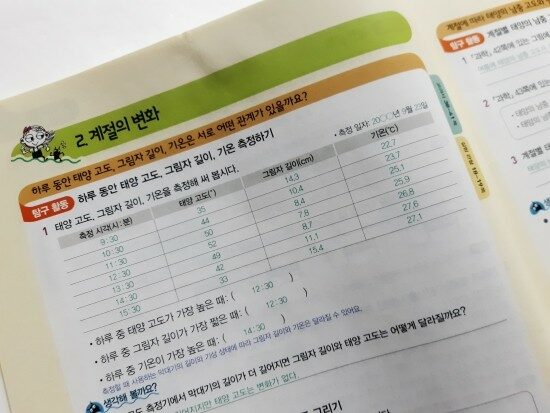 2. 계절의 변화
하루 동안 태양 고도, 그림자 길이, 기온은 서로 어떤 관계가 있을까요?
탐구 활동 하루 동안 태양 고도, 그림자 길이, 기온 측정하기
1 태양 고도, 그림자 길이, 기온을 측정해 써 봅시다.
• 측정 일자: 20○○년 9월 23일
측정 시각(시 : 분) 태양 고도(°) 그림자 길이(cm) 기온(℃)
9 : 30 35 14.3 22.7
10 : 30 44 10.4 23.7
11 : 30 50 8.4 25.1
12 : 30 52 7.8 25.9
13 : 30 49 8.7 26.8
14 : 30 42 11.1 27.6
15 : 30 33 15.4 27.1
• 하루 중 태양 고도가 가장 높은 때: ( 12 : 30 )
• 하루 중 그림자 길이가 가장 짧은 때: ( 12 : 30 )
• 하루 중 기온이 가장 높은 때: ( 14 : 30 )
측정할 때 사용하는 막대기의 길이와 기상 상태에 따라 그림자 길이와 기온은 달라질 수 있어요.
생각해 볼까요?
고도 측정기에서 막대기의 길이가 더 길어지면 그림자 길이와 태양 고도는 어떻게 달라질까요?
길어지지만 태양 고도는 변화가 없다.
그래프로 그리기
계절에 따라 태양의 남중 고도와
탐구 활동 계절별 태양의 남중 고도
1 「과학」 42쪽에 있는 그림에
2 「과학」 43쪽에 있는
• 태양의 남
• 태양의 남
3 계절별 태